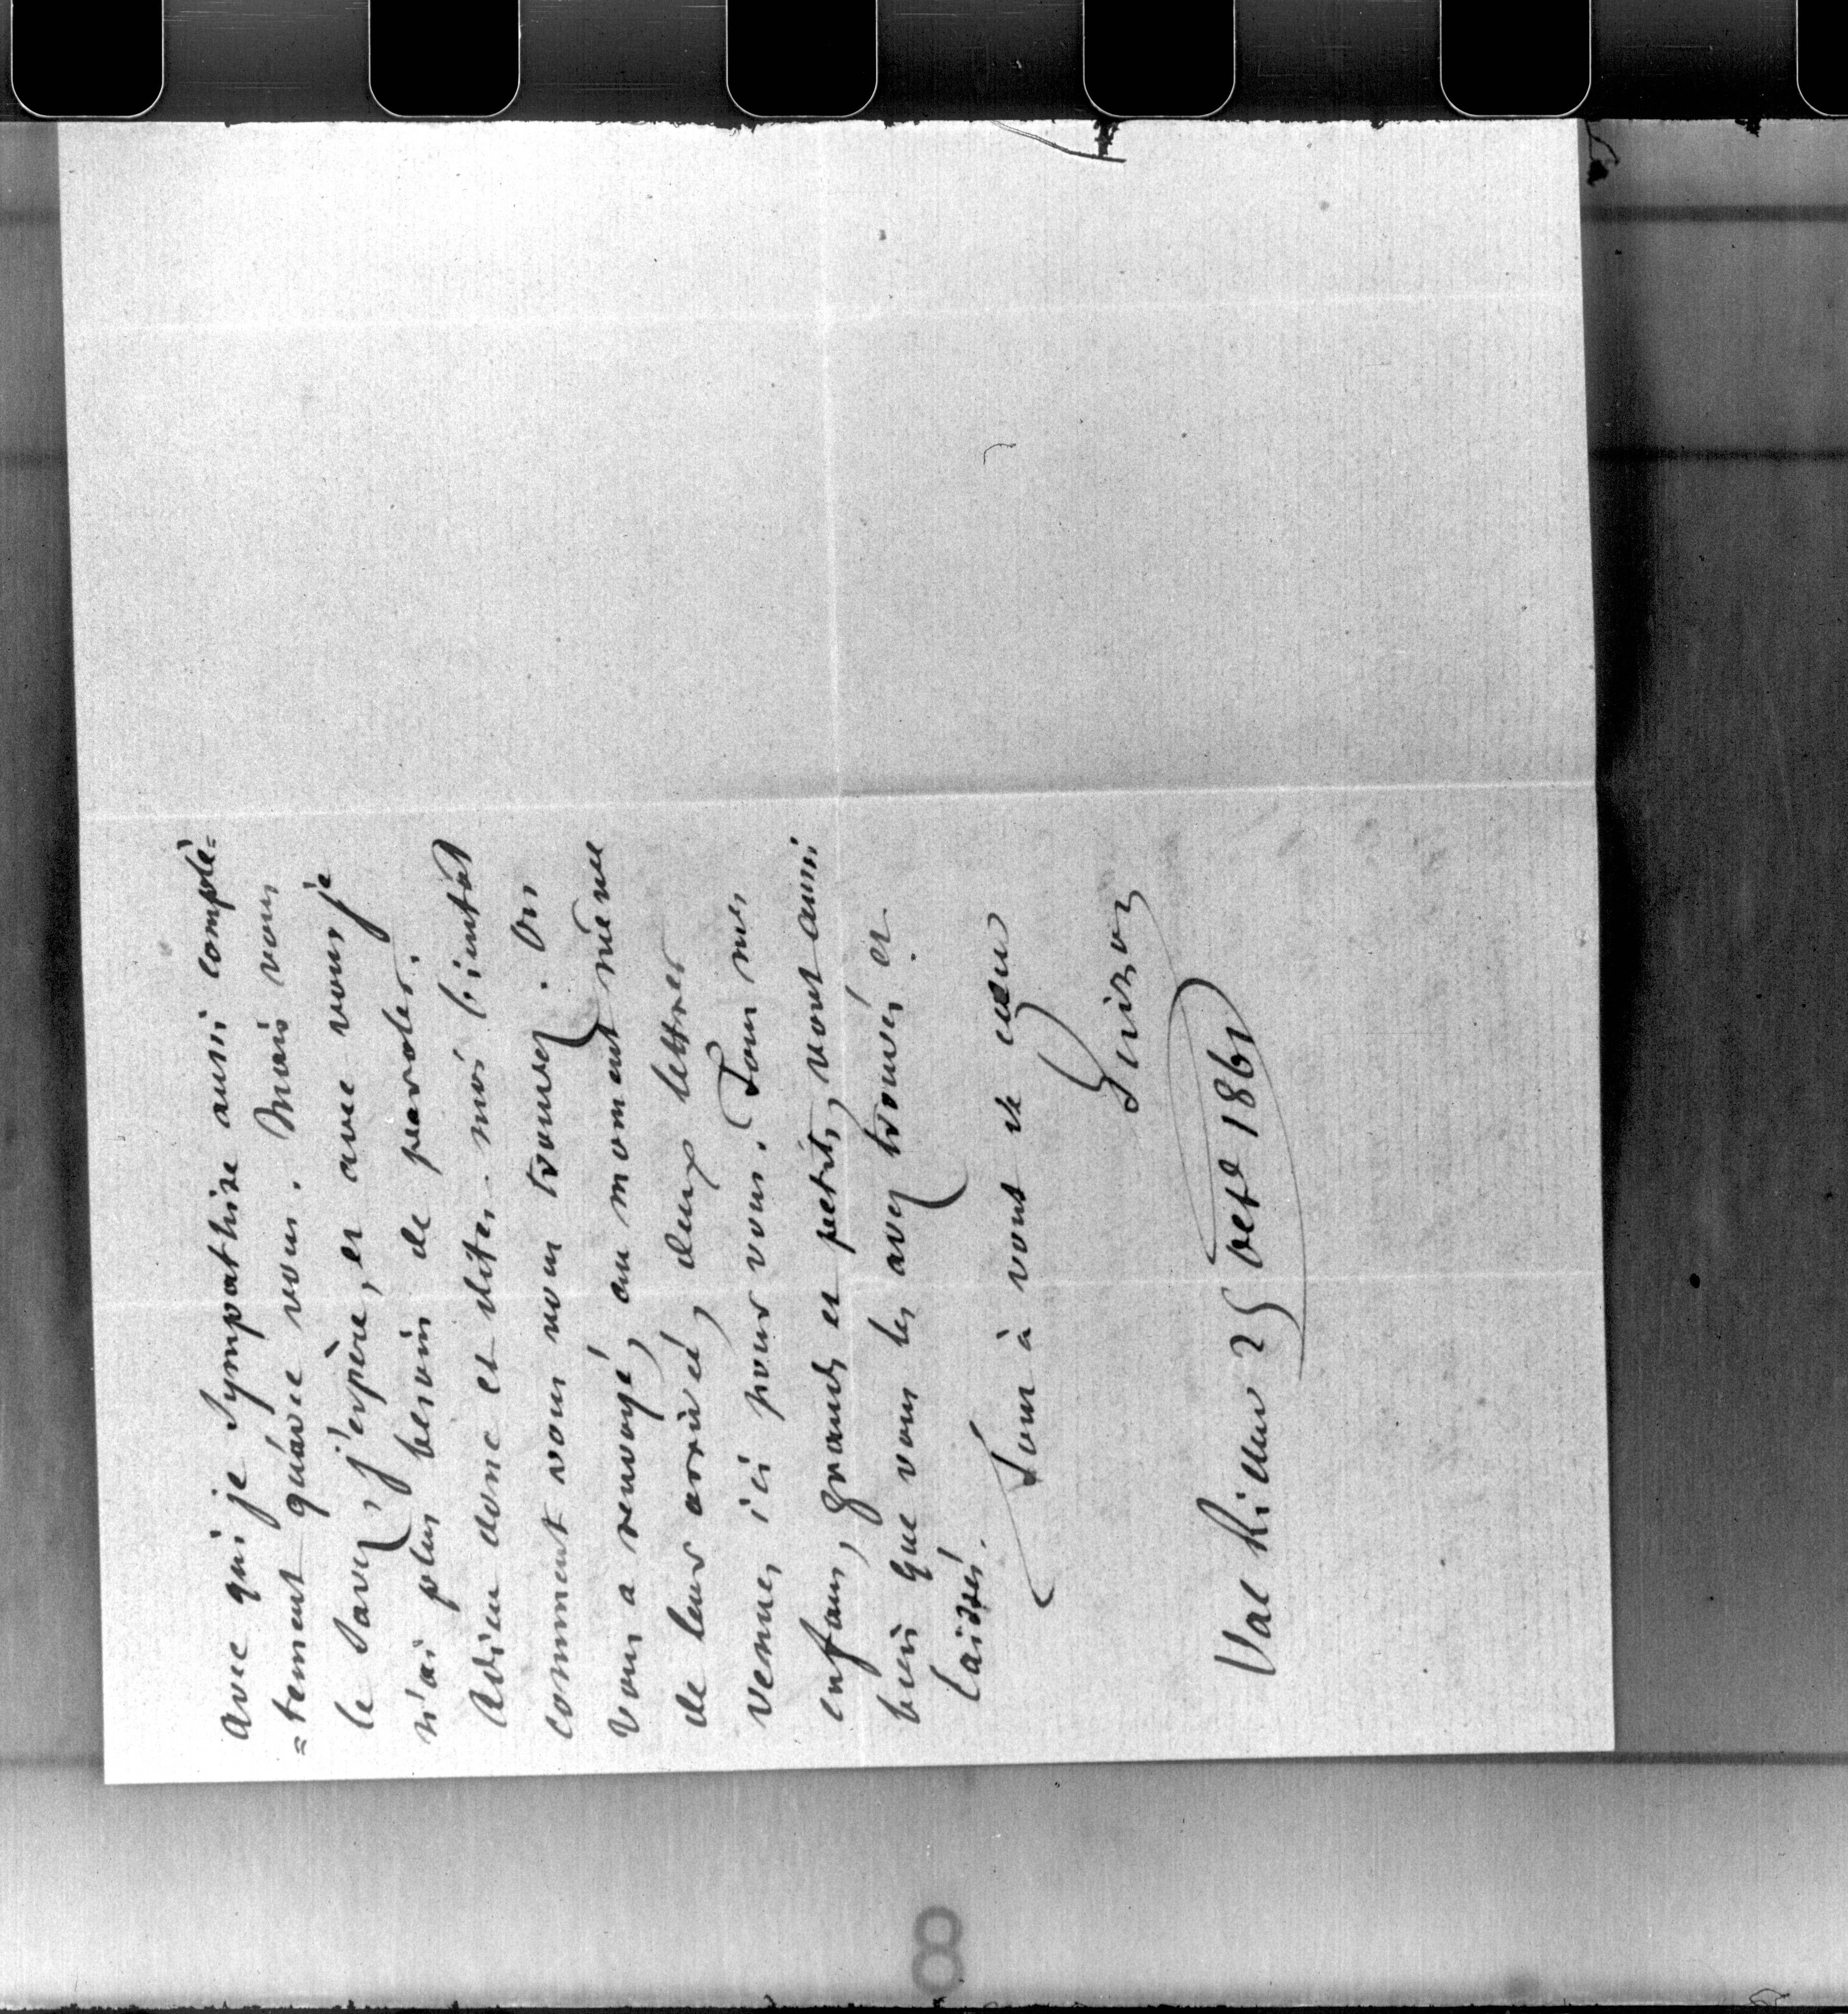 avec qui je sympathise aussi complè=
=tement qu'avec vous. Mais vous
le savez, j'espère, et avec vous je
n'ai plus besoin de paroles.
Adieu donc et dites-moi bientôt
comment vous vous trouvez. On
vous a renvoyé, au moment même
de leur arrivée, deux lettres
venues ici pour vous. Tous mes
enfans, grands et petits, vont aussi
bien que vous les avez trouvés et
laissés.
Tout à vous de cœur
Guizot
Val Richer 25 oct 1861
8